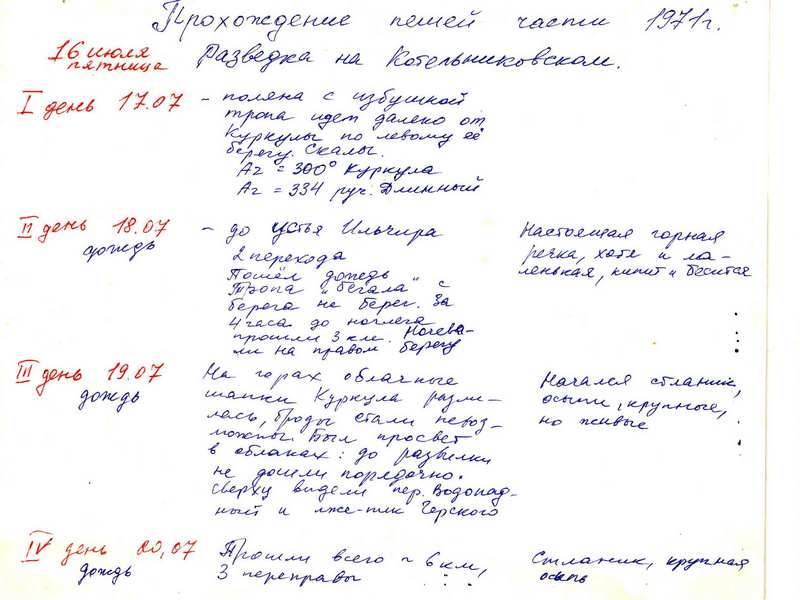 Прохождение пешей части 1971г.
16 июля
пятница
Разведка на Котельниковском.
I день 17.07
- поляна с избушкой
тропа идет далеко от
Куркулы по левому её
берегу. Скалы.
Аz = 300° Куркула
Аz = 334 руч. Длинный
II день 18.07
дождь
- до устья Ильчира
2 перехода
Пошёл дождь
Тропа "бегала" с
берега на берег. За
4 часа до ночлега
прошли 3 км. Ночева-
ли на правом берегу
Настоящая горная
речка, хотя и ма-
ленькая, кипит и бесится
III день 19.07
дождь
На горах облачные
шапки Куркула разли-
лась, броды стали невоз-
можны. Был просвет
в облаках: до развилки
не дошли порядочно.
Сверху видели пер. Водопад-
ный и лже-пик Черского
Начался стланик,
осыпи, крупные,
но живые
IV день 20,07
дождь
Прошли всего ~ 6 км,
3 переправы
Стланик, крупная
осыпь